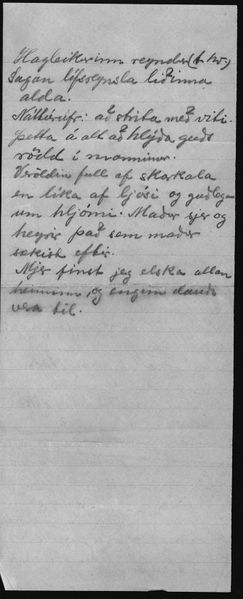 Hagleikurinn reyndur (t. hv.)
Sagan lífsreynsla liðinna
alda.
Náttúrufr. að strita með viti.
Þetta á alt að hlýða guðs
rödd í manninum.
Veröldin full af skarkala
en líka af ljósi og guðlega
um hljómi. Maður sjer og
heyrir það sem maður
sækist eftir.
Mjer finst jeg elska allan
heiminn og enginn dauði
vera til.